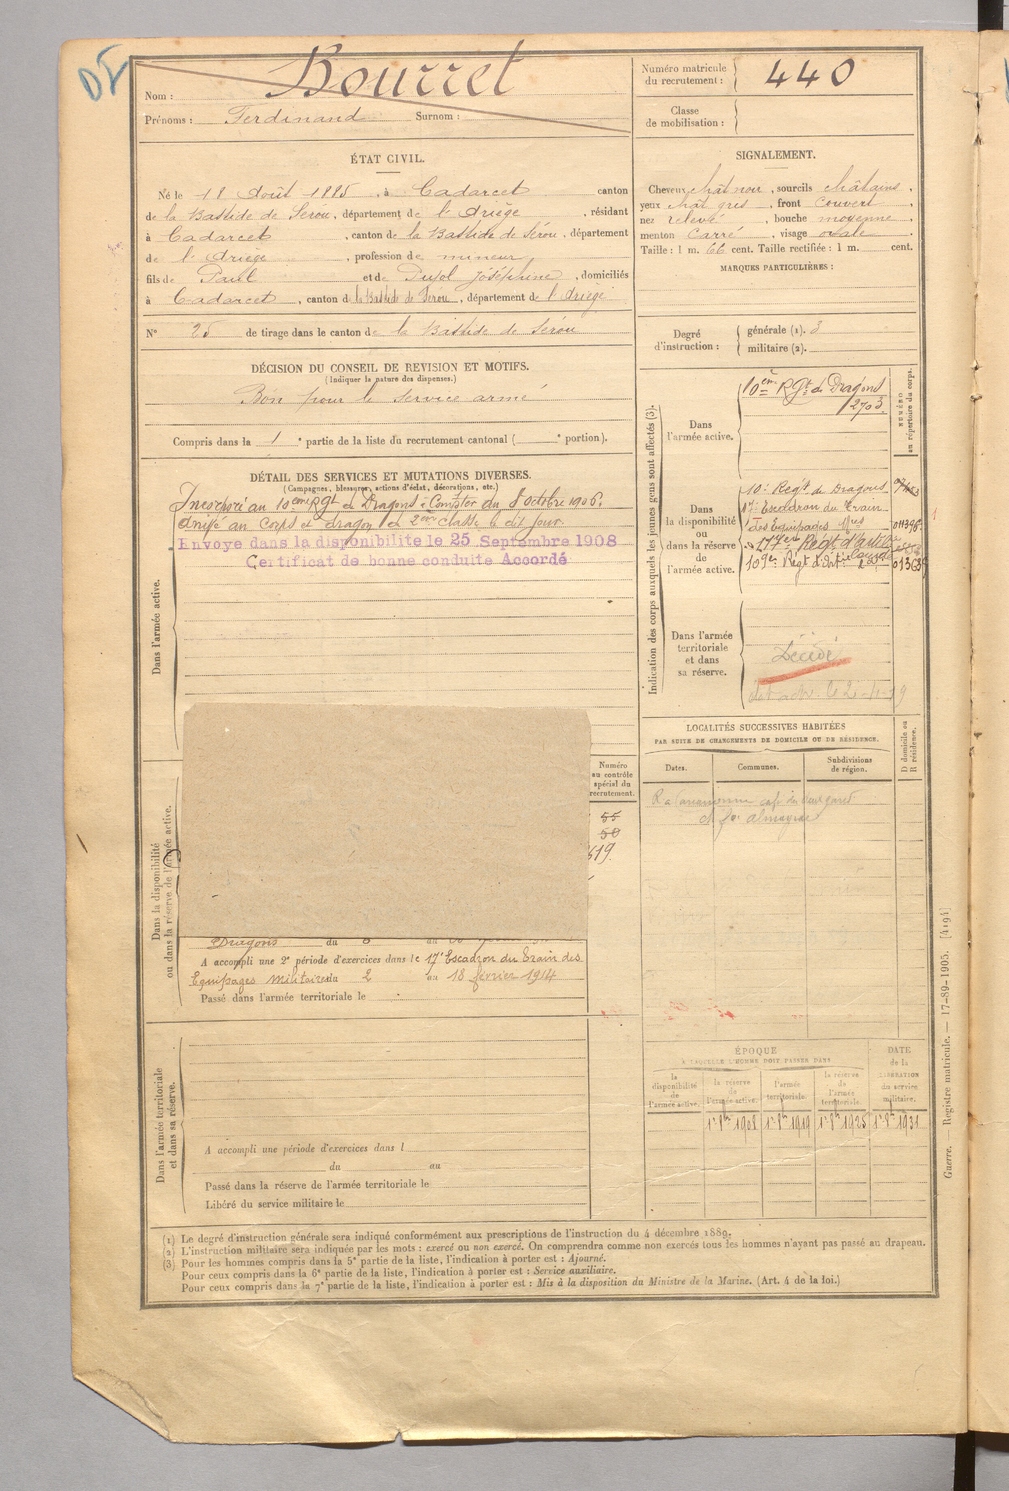 Nom : Bourret
Prénoms : Ferdinand Surnom :
Numéro matricule du recrutement : 440
Classe de mobilisation :
ÉTAT CIVIL.
Né le 18 Août 1885, à Cadarcet canton
de la Bastide de Sérou, département de l'Ariège, résidant
à Cadarcet, canton de la Bastide de Sérou, département
de l'Ariège, profession de mineur
fils de Paul et de Pujol Joséphine, domiciliés
à Cadarcet, canton de la Bastide de Sérou, département de l'Ariège
N° 25 de tirage dans le canton de la Bastide de Sérou
SIGNALEMENT.
Cheveux chât noir, sourcils châtains,
yeux chât gris, front couvert,
nez relevé, bouche moyenne,
menton carré, visage ovale.
Taille : 1 m. 66 cent. Taille rectifiée : 1 m. cent.
MARQUES PARTICULIÈRES :
Degré d'instruction : générale (1). 3
militaire (2).
DÉCISION DU CONSEIL DE REVISION ET MOTIFS.
(Indiquer la nature des dispenses.)
Bon pour le service armé
Compris dans la 1e partie de la liste du recrutement cantonal ( e portion).
DÉTAIL DES SERVICES ET MUTATIONS DIVERSES.
(Campagnes, blessures, actions d'éclat, décorations, etc.)
Incorporé au 10ème Rgt de Dragons à Compter du 8 Octobre 1906.
Arrivé au Corps et dragon de 2ème classe le dit jour.
Envoyé dans la disponibilité le 25 Septembre 1908
Certificat de bonne conduite Accordé
Dans l'armée active.
Indication des corps auxquels les jeunes gens sont affectés (3).
NUMÉRO au répertoire du corps.
Dans l'armée active.
10ème Rgt de Dragons
2703
Dans la disponibilité ou dans la réserve de l'armée active.
10e Régt de Dragons
17e Escadron du Train
des Équipages Mres
109e Régt d'Inf.
Dans l'armée territoriale et dans sa réserve.
Décédé
LOCALITÉS SUCCESSIVES HABITÉES
PAR SUITE DE CHANGEMENTS DE DOMICILE OU DE RÉSIDENCE.
Dates. Communes. Subdivisions de région.
D domicile ou R résidence.
Dans la disponibilité ou dans la réserve de l'armée active.
Numéro au contrôle spécial du recrutement.
55
50
619
Dragons du 8 au
A accompli une 2e période d'exercices dans le 17e Escadron du Train des
Équipages Militaires du 2 au 18 février 1914
Passé dans l'armée territoriale le
ÉPOQUE
A LAQUELLE L'HOMME DOIT PASSER DANS
la disponibilité de l'armée active.
la réserve de l'armée active.
l'armée territoriale.
la réserve de l'armée territoriale.
DATE de la LIBÉRATION du service militaire.
1r 8bre 1908 1r 8bre 1919 1r 8bre 1925 1r 8bre 1931
Dans l'armée territoriale et dans sa réserve.
A accompli une période d'exercices dans l
du au
Passé dans la réserve de l'armée territoriale le
Libéré du service militaire le
(1) Le degré d'instruction générale sera indiqué conformément aux prescriptions de l'instruction du 4 décembre 1889.
(2) L'instruction militaire sera indiquée par les mots : exercé ou non exercé. On comprendra comme non exercés tous les hommes n'ayant pas passé au drapeau.
(3) Pour les hommes compris dans la 5e partie de la liste, l'indication à porter est : Ajourné.
Pour ceux compris dans la 6e partie de la liste, l'indication à porter est : Service auxiliaire.
Pour ceux compris dans la 7e partie de la liste, l'indication à porter est : Mis à la disposition du Ministre de la Marine. (Art. 4 de la loi.)
Guerre. — Registre matricule. — 17-89-1905. [4194]